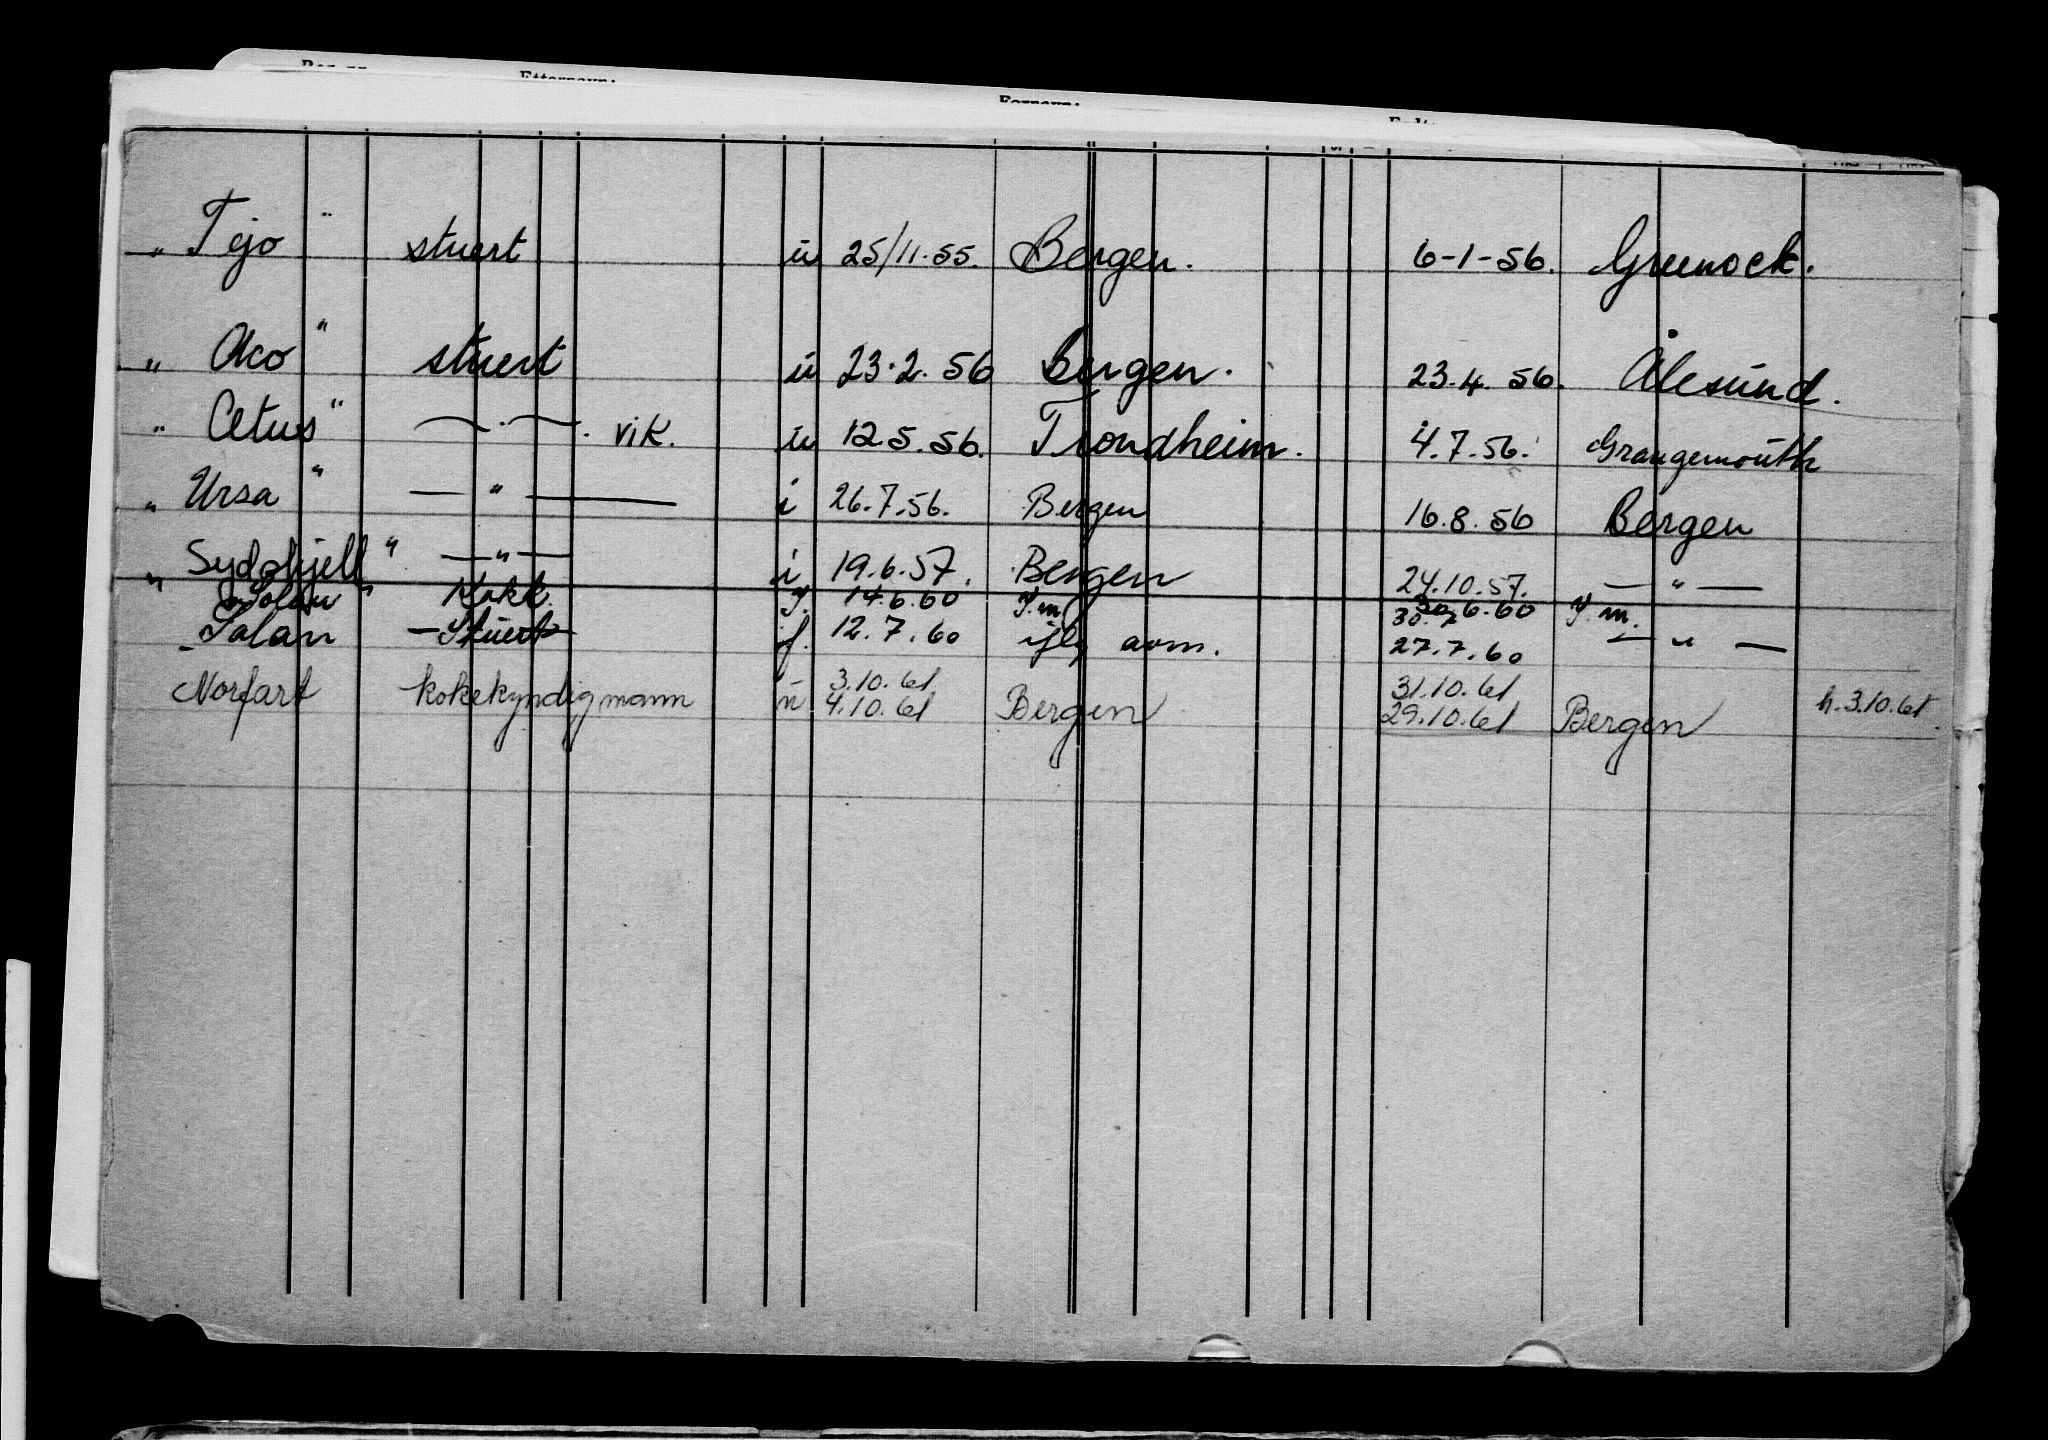 Etternavn:
Fornavn:
„ Tejo" stuert u 25/11-55. Bergen. 6-1-56. Greenock.
„ Aco" stuert u 23.2.56 Bergen. 23.4.56. Ålesund.
„ Cetus" —.—. vik. u 12.5.56. Trondheim. 4.7.56. Grangemouth
„ Ursa" — " — i 26.7.56. Bergen 16.8.56 Bergen
„ Sydhjell" — " — i 19.6.57. Bergen 24.10.57. — " —
Kokk. 14.6.60 Y.m. 6.60 Y.m.
Salan — Stuert f. 12.7.60 avm. 27.7.60 — " —
Norfart kokekyndig mann u 3.10.61 31.10.61
4.10.61 Bergen 29.10.61 Bergen h. 3.10.61.